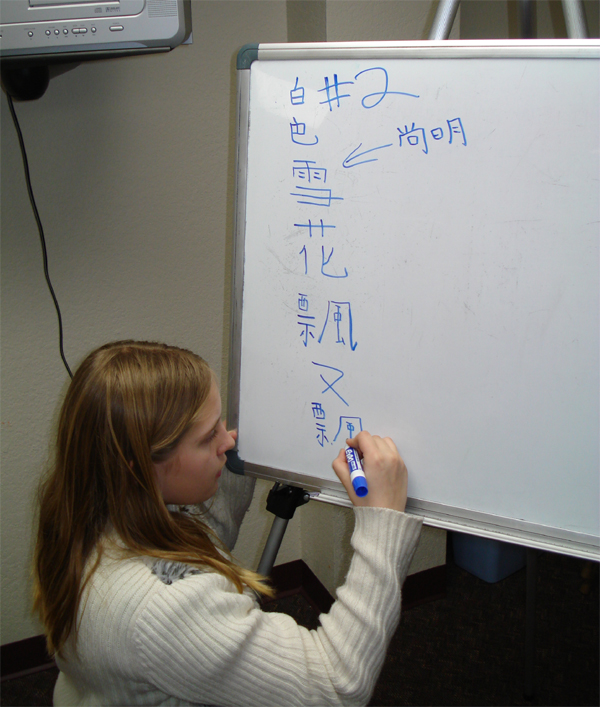 #2
白色雪花飄又飄
尚明